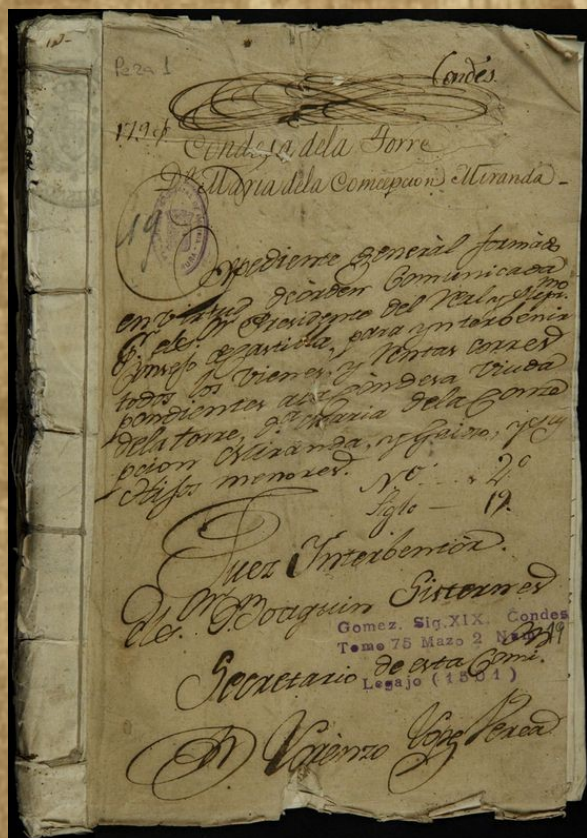 Peza 1
Condes
Condesa de la Torre
Dª Maria de la Comcepcion Miranda -
19
Expediente General formado
en virtud de órden Comunicada
Presidente del Real, y Supr.mo
Consejo de Castilla, para ynterbenir
todos los Vienes, y Rentas corres
pondientes a la Condesa Viuda
de la Torre, D.ª Maria de la Conce
pcion Miranda, y
Hijos menores.
Nº 2º
Siglo — 19.
Juez Interbentor.
Joaquin Sisternes
Gomez. Sig.XIX. Condes
Tomo 75 Mazo 2 Num 19
Secretario de esta Comi.on
Legajo (1501)
Dn Lorenzo